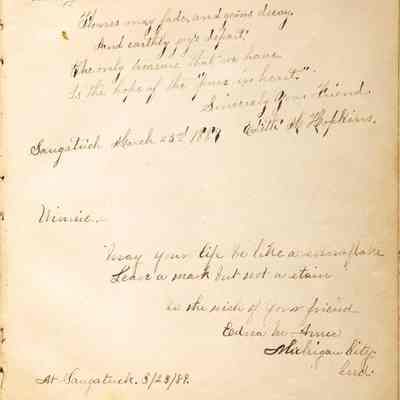 Flowers may fade, and gems decay.
And earthly joys depart
The only treasure that we have
Is the hope of the "pure in heart."
Sincerely Your Friend
Edith M Hopkins.
Saugatuck March 23rd 1889
Winnie.
May your life be like a snowflake
Leave a mark but not a stain
is the wish of your friend
Edna M.
Michigan City
Ind.
At Saugatuck. 3/23/89.